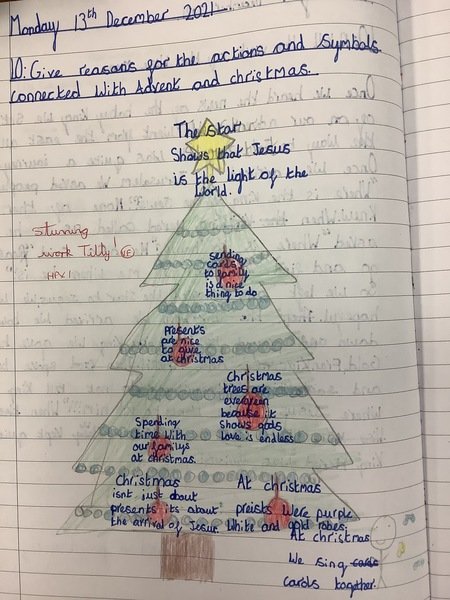 Monday 13th December 2021
LO: Give reasons for the actions and symbols
connected with Advent and christmas.
The star
Shows that Jesus
is the light of the
World.
stunning
work Tilly!
HPx1
sending
cards
to family
is a nice
thing to do
Presents
are nice
to give
at christmas
Christmas
trees are
evergreen
because it
shows gods
love is endless
Spending
time with
our familys
at christmas.
Christmas
isnt just about
presents its about
the arrival of Jesus.
At christmas
preists Were purple
White and gold robes.
At christmas
We sing cards
carols together.